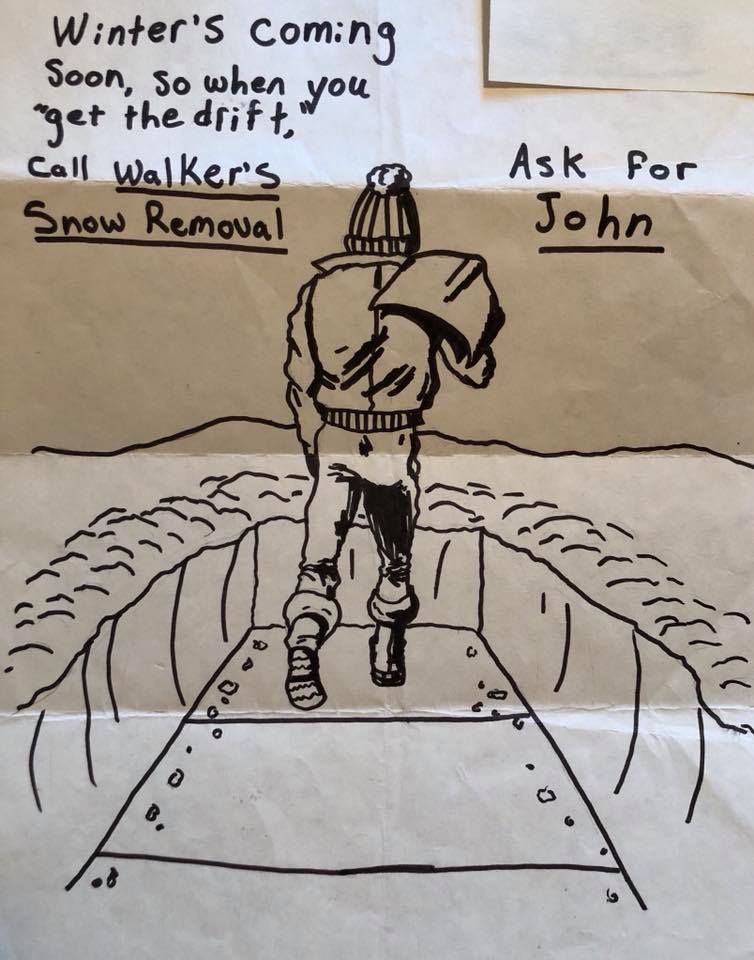 Winter's coming
Soon, so when you
"get the drift,"
Call Walker's
Snow Removal
Ask For
John